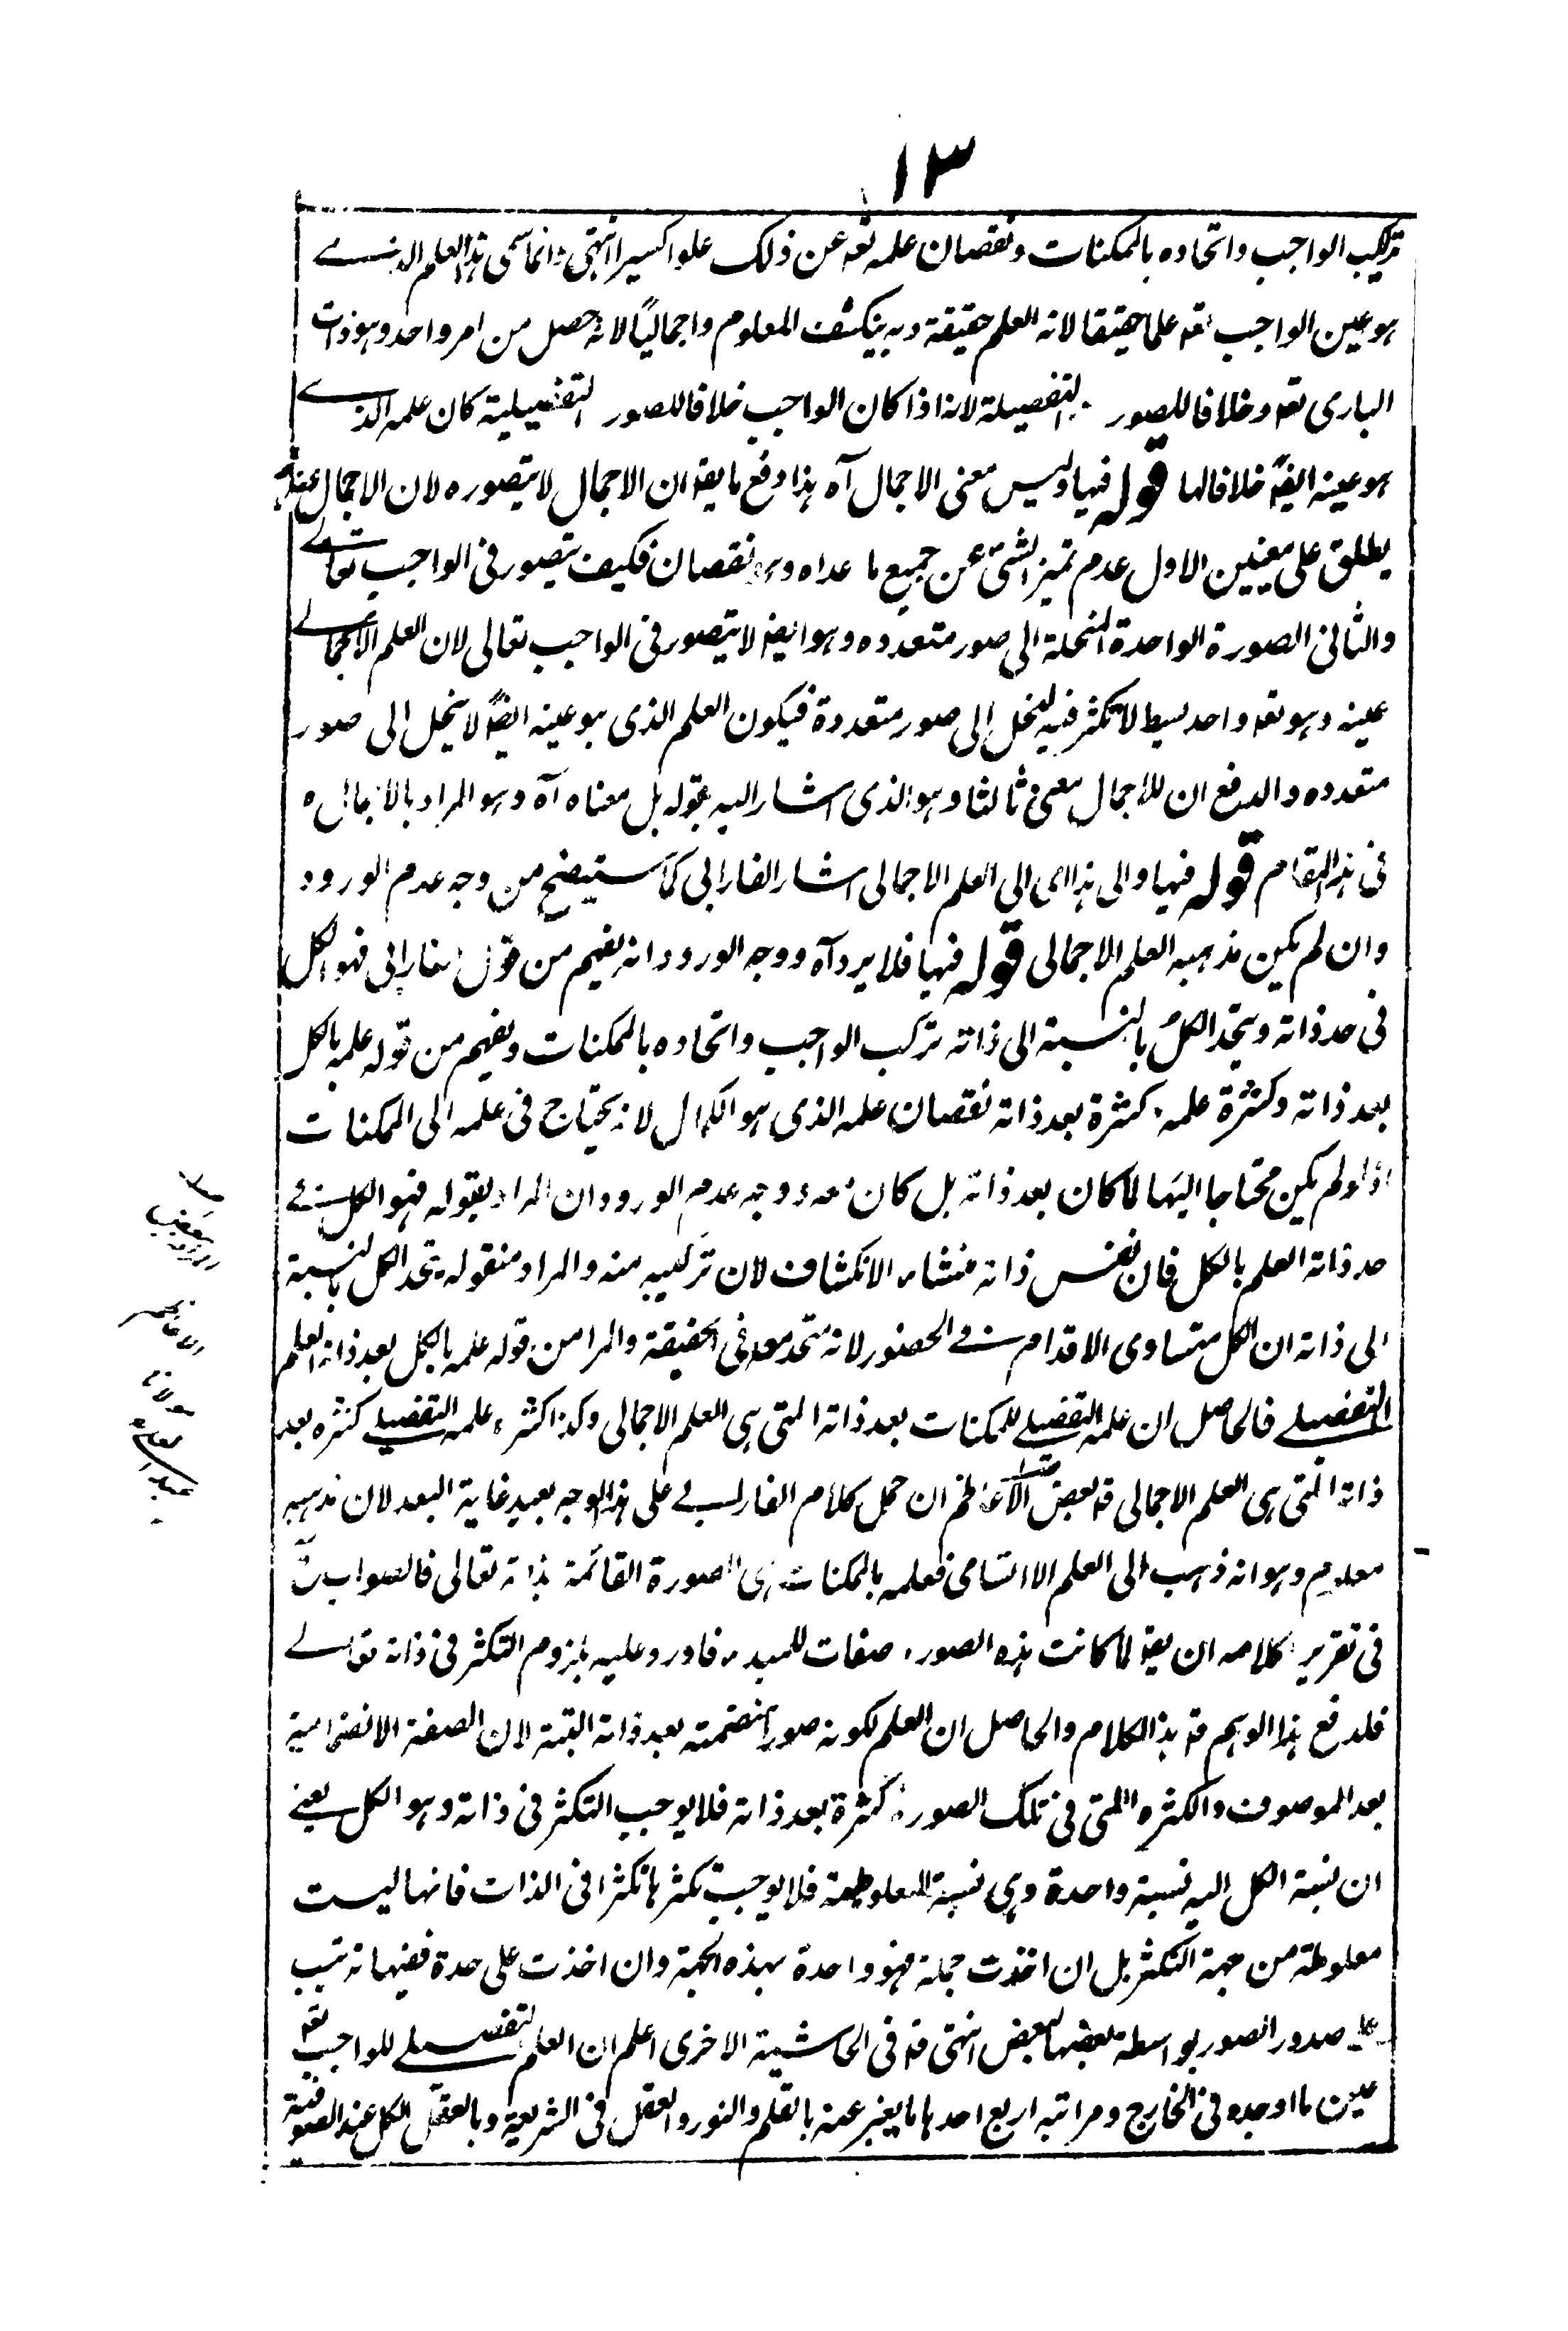 ١٣
تركيب الواجب واتحاده بالممكنات ونقصان علمه تعه عن ذلك علوا كبيرا انتهى وانما سمى هذا العلم الذي
هو عين الواجب تعه علما حقيقا لانه العلم حقيقة وبه ينكشف المعلوم واجماليًا لانه حصل من امر واحد وهو ذات
البارى تعه وخلافا للصور التفصيلة لانه اذا كان الواجب خلافا للصور التفصيلية كان علمه الذي
هو عينه ايضًا خلافا لها قوله فيها وليس معنى الاجمال آه هذا دفع ما يقه ان الاجمال لا يتصوره لان الاجمال عندهم
يطلق على معنيين الاول عدم تميز الشئ عن جميع ما عداه وهو نقصان فكيف يتصور فى الواجب تعالے
والثانى الصورة الواحدة المنحلة الى صور متعدده وهو ايضه لا يتصور فى الواجب تعالى لان العلم الاجمالے
عينه وهو تعه واحد بسيط لا تكثر فيه لينحل الى صور متعددة فيكون العلم الذى هو عينه ايضًا لا ينحل الى صور
متعدده والدفع ان للاجمال معنى ثالثا وهو الذى اشار اليه بقوله بل معناه آه وهو المراد بالاجمال ه
فى هذا المقام قوله فيها والى هذا اى الى العلم الاجمالى اشار الفارابى كما ستيضح من وجه عدم الورود
وان لم يكن مذهبه العلم الاجمالى قوله فيها فلا يرد آه ووجه الورود انه يفهم من قول الفارابى فهو الكل
فى حد ذاته ويتحد الكل بالنسبة الى ذاته تركب الواجب واتحاده بالممكنات ويفهم من قوله علمه بالكل
بعد ذاته وكثرة علمه كثرة بعد ذاته نقصان علمه الذى هو الكمال لانه يحتاج فى علمه الى الممكنات
اذ لو لم يكن محتاجا اليها لما كان بعد ذاته بل كان معه ووجه عدم الورود ان المراد بقوله فهو الكل فے
حد ذاته العلم بالكل فان نفس ذاته منشاء الانكشاف لان تركيبه منه والمراد منقوله يتحد الكل بالنسبة
الى ذاته ان الكل متساوى الاقدام فے الحضور لانه متحد معه فى الحقيقة والمرا من قوله علمه بالكل بعد ذاته العلم
التفصيلے فالحاصل ان علمه التفصيلے للمكنات بعد ذاته التى هى العلم الاجمالى وكذا كثرة علمه التفصيلے كثره بعد
ذاته التى هى العلم الاجمالى قه بعض الاعاظم ان حمل كلام الفارابے على هذا الوجه بعيد غاية البعد لان مذهبه
معلوم وهو انه ذهب الى العلم الارتسامى فعلمه بالمكنات هى الصورة القائمة بذاته تعالى فالصواب
فى تقرير كلامه ان يقه لما كانت هذه الصور صفات للمبدء فاورد عليه بلزوم التكثر فى ذاته تعالے
فلدفع هذا الوهم قه هذا الكلام والحاصل ان العلم لكونه صورا منضمته بعد ذاته البتة لان الصفة الانضمامية
بعد الموصوف والكثره التى فى تلك الصور كثرة بعد ذاته فلا يوجب التكثر فى ذاته وهو الكل يعنے
ان نسبة الكل اليه نسبة واحدة وهى نسبة المعلولية فلا يوجب تكثرها تكثرا فى الذات فانها ليست
معلولة من جهة التكثر بل ان اخذت جملة فهو واحدة بهذه الجهة وان اخذت على حدة ففيها ترتيب
علے صدور الصور بواسطة بعضها لبعض انتهى قه فى الحاشية الاخرى اعلم ان العلم التفصيلے للواجب تعه
عين ما اوجده فى الخارج ومراتبه اربع احدها ما يعبر عنه بالقلم والنور والعقل فى الشريعة وبالعقل الكل عند الصوفية
المراد ببعض
الاعاظم
مولانا
عبد العلے